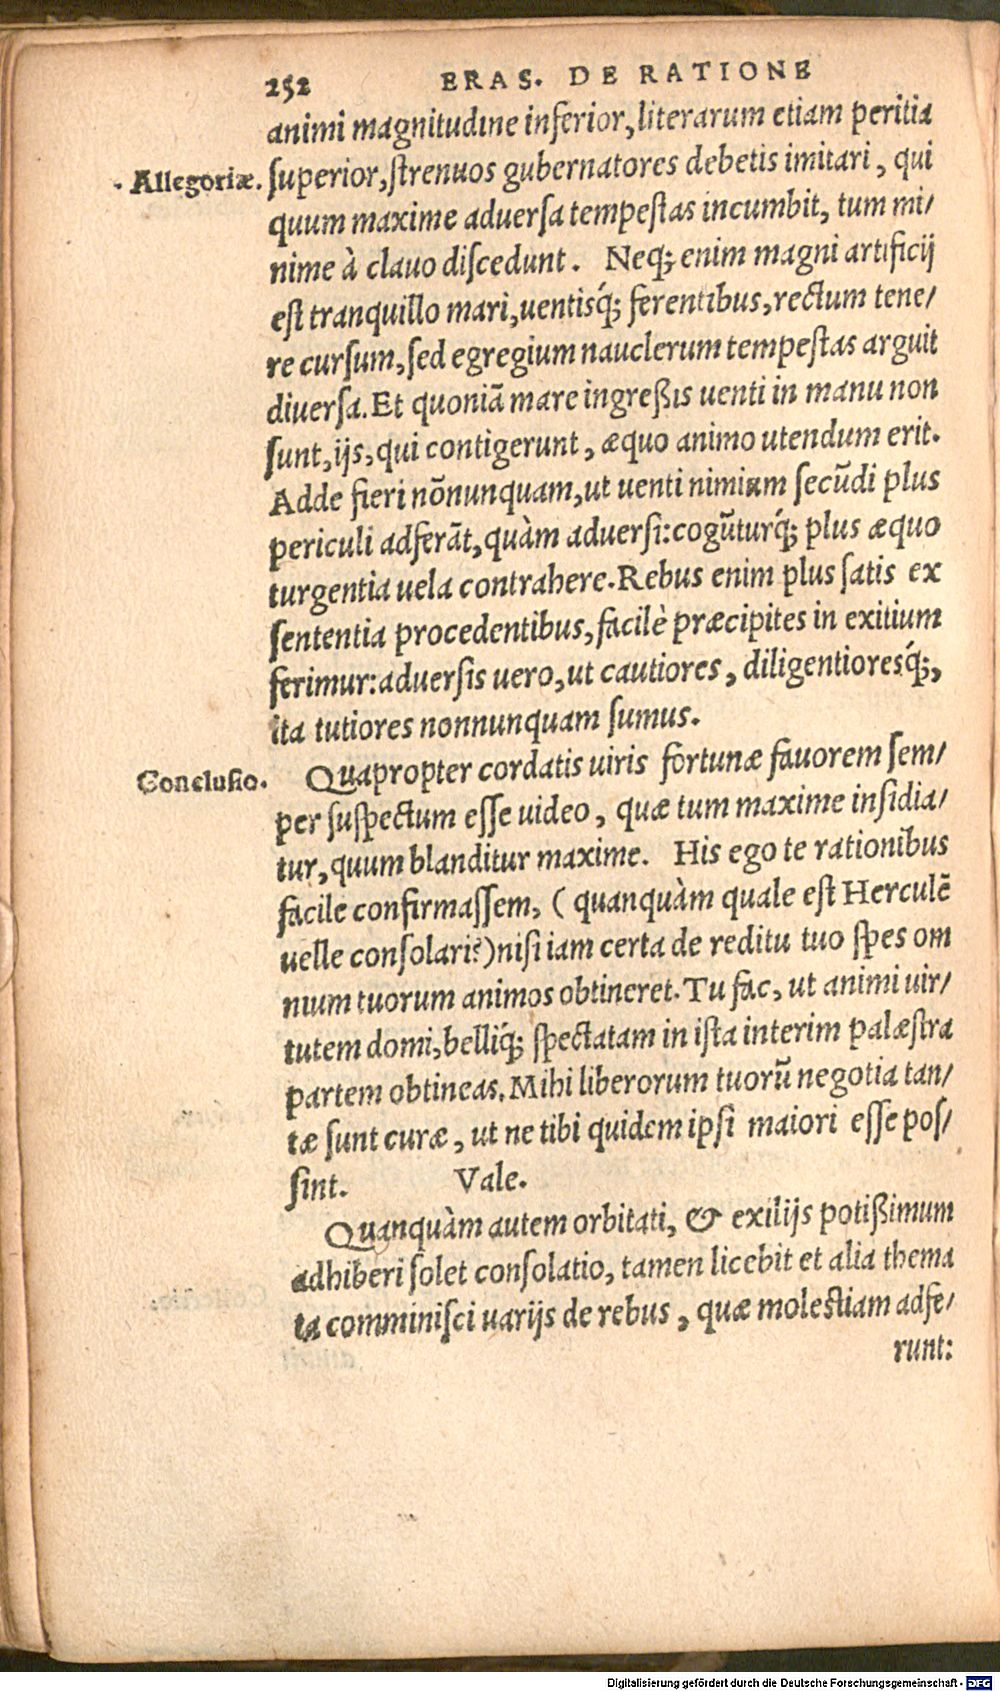 252 ERAS. DE RATIONE
animi magnitudine inferior, literarum etiam peritia
Allegoriæ. superior, ſtrenuos gubernatores debetis imitari, qui
quum maxime aduerſa tempeſtas incumbit, tum mi/
nime à clauo diſcedunt. Neq; enim magni artificij
eſt tranquillo mari, uentisq́; ferentibus, rectum tene/
re curſum, ſed egregium nauclerum tempeſtas arguit
diuerſa. Et quoniã mare ingreßis uenti in manu non
ſunt, ijs, qui contigerunt, æquo animo utendum erit.
Adde fieri nõnunquam, ut uenti nimium ſecũdi plus
periculi adferãt, quàm aduerſi: cogũturq́; plus æquo
turgentia uela contrahere. Rebus enim plus ſatis ex
ſententia procedentibus, facilè præcipites in exitium
ferimur: aduerſis uero, ut cautiores, diligentioresq́;,
ita tutiores nonnunquam ſumus.
Concluſio. Quapropter cordatis uiris fortunæ fauorem ſem/
per ſuſpectum eſſe uideo, quæ tum maxime inſidia/
tur, quum blanditur maxime. His ego te rationibus
facile confirmaſſem, (quanquàm quale eſt Herculẽ
uelle conſolari?) niſi iam certa de reditu tuo ſpes om
nium tuorum animos obtineret. Tu fac, ut animi uir/
tutem domi, belliq́; ſpectatam in iſta interim palæſtra
partem obtineas. Mihi liberorum tuorũ negotia tan/
tæ ſunt curæ, ut ne tibi quidem ipſi maiori eſſe poſ/
ſint. Vale.
Quanquàm autem orbitati, & exilijs potißimum
adhiberi ſolet conſolatio, tamen licebit et alia thema
ta comminiſci uarijs de rebus, quæ moleſtiam adfe/
runt:
Digitalisierung gefördert durch die Deutsche Forschungsgemeinschaft - DFG